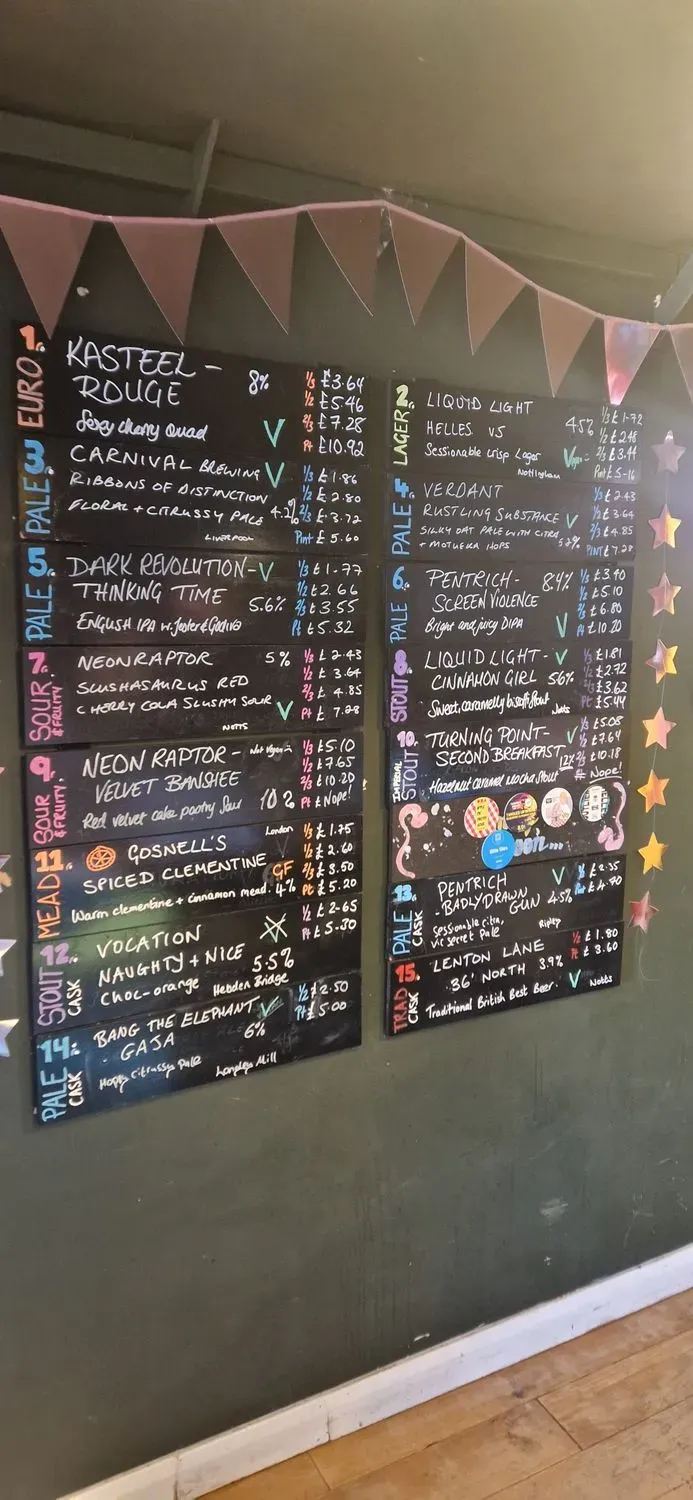 1. EURO
KASTEEL -
ROUGE
8%
Sexy cherry Quad
V
1/3 £3.64
1/2 £5.46
2/3 £7.28
Pt £10.92
2. LAGER
LIQUID LIGHT
HELLES V5
4.5%
Sessionable crisp Lager
Nottingham
1/3 £1-72
1/2 £2.48
2/3 £3.44
Pint £5-16
3. PALE
CARNIVAL BREWING V
RIBBONS OF DISTINCTION
FLORAL + CITRUSSY PALE 4.2%
LIVERPOOL
1/3 £1.86
1/2 £2.80
2/3 £3.72
Pint £5.60
4. PALE
VERDANT
RUSTLING SUBSTANCE V
SILKY OAT PALE WITH CITRA
+ MOTUEKA HOPS
1/3 £2.43
1/2 £3.64
2/3 £4.85
PINT £7.28
5. PALE
DARK REVOLUTION - V
THINKING TIME
5.6%
ENGLISH IPA w. Jester & Godiva
1/3 £1-77
1/2 £2.66
2/3 £3.55
Pt £5.32
6. PALE
PENTRICH - 8.4%
SCREEN VIOLENCE
Bright and juicy DIPA V
1/3 £3.40
1/2 £5.10
2/3 £6.80
Pt £10.20
7. SOUR & FRUITY
NEON RAPTOR 5%
SLUSHASAURUS RED
CHERRY COLA SLUSHY SOUR V
NOTTS
1/3 £2.43
1/2 £3.64
2/3 £4.85
Pt £7.28
8. STOUT
LIQUID LIGHT - V
CINNAMON GIRL 5.6%
Sweet, caramelly biscoff stout Notts
1/3 £1.81
1/2 £2.72
2/3 £3.62
Pt £5.44
9. SOUR & FRUITY
NEON RAPTOR - Not Vegan
VELVET BANSHEE
Red velvet cake pastry Sour 10.2
1/3 £5.10
1/2 £7.65
2/3 £10.20
Pt £Nope!
10. IMPERIAL STOUT
TURNING POINT - V
SECOND BREAKFAST 12%
Hazelnut caramel mocha Stout
1/3 £5.08
1/2 £7.64
2/3 £10.18
Nope!
11. MEAD
GOSNELL'S London
SPICED CLEMENTINE GF
Warm clementine + cinnamon mead. 4%
1/3 £1.75
1/2 £2.60
2/3 £3.50
Pt £5.20
12. STOUT CASK
VOCATION
NAUGHTY + NICE
5.5%
CHOC-ORANGE Hebden Bridge
1/2 £2-65
Pt £5-30
13. PALE CASK
PENTRICH V
BADLY DRAWN GUN 4.5%
Sessionable citra,
vic secret Pale Ripley
1/2 £2.35
Pint £4.70
14. PALE CASK
BANG THE ELEPHANT V
- GAJA 6%
Hoppy citrussy Pale Langley Mill
1/2 £2.50
Pt £5.00
15. TRAD CASK
LENTON LANE
'36' NORTH 3.9%
Traditional British Best Beer. V Notts
1/2 £1.80
Pt £3.60